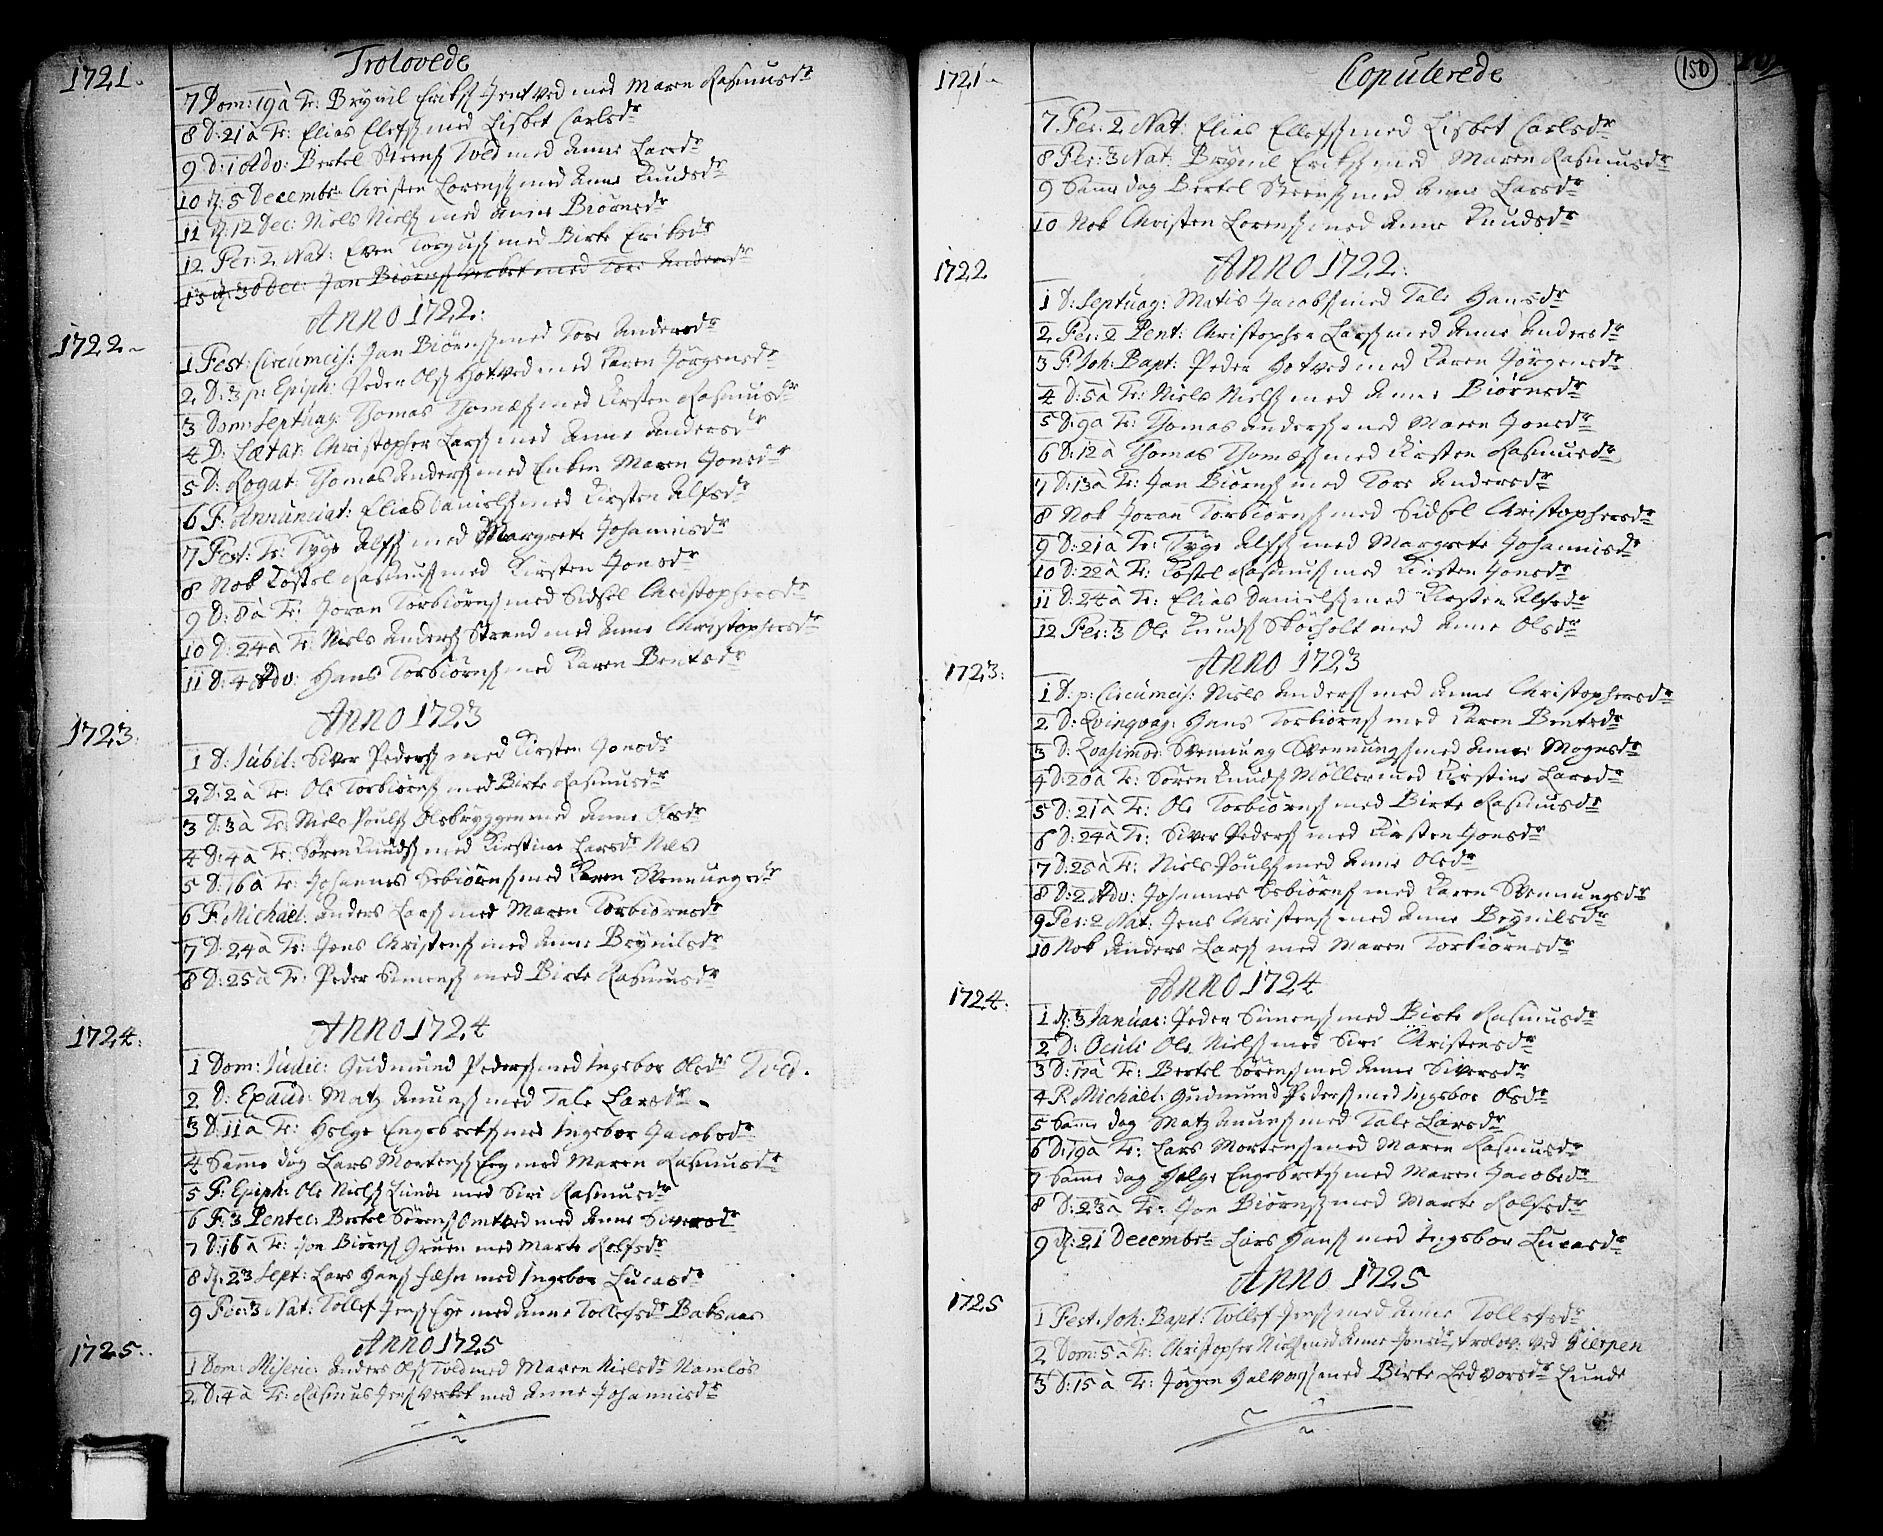 Trolovede
1721.
7 Dom: 19 à Tr: Brynil Eriks: Jentved med Maren Rasmusdr
8 D: 21 à Tr: Elias Elefs: med Lisbet Carlsdr
9 D: 1 Adv: Bertel Steens: Told med Anne Larsdr
10 d: 5 Decembr: Christen Lorens: med Anne Knudsdr
11 d: 12 Dec: Niels Niels: med Anne Biörnsdr
12 Fer: 2 Nat: Even Torgius: med Birte Eriksdr
13 d: 30 Dec: Jan Biörns: med Tore Andersdr
Anno 1722.
1722
1 Fest: Circumcis: Jan Biörns: med Tore Andersdr
2 D: 3 p: Epiph: Peder Ols: Hotved med Karen Jörgensdr
3 Dom: Septuag: Thomas Thomæs: med Kirsten Rasmusdr
4 D: Lætar: Christopher Lars: med Anne Andersdr
5 D: Rogat: Thomas Anders: med Enken Maren Jonsdr
6 F: Annunciat: Elias Daniels: med Kirsten Alfsdr
7 Fest: Tr: Tyge Alfs: med Margrete Johannisdr
8 Nok Köstel Rasmus: med Kirsten Jonsdr
9 D: 8 à Tr: Joran Torbiörns: med Sidsel Christophersdr
10 D: 24 à Tr: Niels Anders: Strand med Anne Christophersdr
11 D: 4 Adv: Hans Torbiörns: med Karen Bentsdr
Anno 1723
1723.
1 D: Jubil: Siver Peders: med Kirsten Jonsdr
2 D: 2 à Tr: Ole Torbiörns: med Birte Rasmusdr
3 D: 3 à Tr: Niels Pouls: Olsbryggen med Anne Olsdr
4 D: 4 à Tr: Sören Knuds: med Kirstine Larsdr Nes
5 D: 16 à Tr: Johannes Esbiörns: med Karen Svennungsdr
6 F: Michael: Anders Lars: med Maren Torbiörnsdr
7 D: 24 à Tr: Jens Christens: med Anne Brynilsdr
8 D: 25 à Tr: Peder Simens: med Birte Rasmusdr
Anno 1724
1724.
1 Dom: Judic: Gudmund Peders: med Ingebor Olsdr Told.
2 D: Exaud: Matz Amuns: med Tale Larsdr
3 D: 11 à Tr: Helge Engebrets: med Ingebor Jacobsdr
4 Samme dag Lars Mortens: Eeg med Maren Rasmusdr
5 F: Epiph: Ole Niels: Lunde med Siri Rasmusdr
6 F: 3 Pentec: Bertel Sörens: Omtved med Anne Siversdr
7 D: 16 à Tr: Jon Biörns: Gruen med Marte Rolfsdr
8 d: 23 Sept: Lars Hans: med Ingebor Lucasdr
9 Fer: 3 Nat: Tollef Jens: Ege med Anne Tollefsdr Baksaas
Anno 1725
1725.
1 Dom: Miseric: Anders Ols: Told med Maren Nielsdr Namlös
2 D: 4 à Tr: Rasmus Jens: Verket med Anne Johannisdr
Copulerede
150
1721
7 Fer: 2 Nat: Elias Ellefs: med Lisbet Carlsdr
8 Fer: 3 Nat: Brynil Eriks: med Maren Rasmusdr
9 Samme dag Bertel Steens: med Anne Larsdr
10 Nok Christen Lorens: med Anne Knudsdr
1722
Anno 1722.
1 D: Septuag: Matis Jacobs: med Tale Hansdr
2 Fer: 2 Pent: Christopher Lars: med Anne Andersdr
3 F: Joh: Bapt: Peder Hotved med Karen Jörgensdr
4 D: 5 à Tr: Niels Niels: med Anne Biörnsdr
5 D: 9 à Tr: Thomas Anders: med Maren Jonsdr
6 D: 12 à Thomas Thomæs: med Kirsten Rasmusdr
7 D: 13 à Tr: Jan Biörns: med Tore Andersdr
8 Nok Joran Torbiörns: med Sidsel Christophersdr
9 D: 21 à Tr: Tyge Alfs: med Margrete Johannisdr
10 D: 22 à Tr: Köstel Rasmus: med Kirsten Jonsdr
11 D: 24 à Tr: Elias Daniels: med Kirsten Alfsdr
12 Fer: 3 Ole Knuds: Skörholt med Anne Olsdr
1723.
Anno 1723
1 D: p: Circumcis: Niels Anders: med Anne Christophersdr
2 D: Qvinqvag: Hans Torbiörns: med Karen Bentsdr
3 D: Qvasimod: Svennung Svennungs: med Anne Mognsdr
4 D: 20 à Tr: Sören Knuds: Möller med Kirstine Larsdr
5 D: 21 à Tr: Ole Torbiörns: med Birte Rasmusdr
6 D: 24 à Tr: Siver Peders: med Kirsten Jonsdr
7 D: 25 à Tr: Niels Pouls: med Anne Olsdr
8 D: 2 Adv: Johannes Esbiörns: med Karen Svennungsdr
9 Fer: 2 Nat: Jens Christens: med Anne Brynilsdr
10 Nok Anders Lars: med Maren Torbiörnsdr
1724.
Anno 1724
1 d: 3 Januar: Peder Simens: med Birte Rasmusdr
2 D: Oculi Ole Niels: med Siri Christensdr
3 D: 17 à Tr: Bertel Sörens: med Anne Siversdr
4 F: Michael: Gudmund Peders: med Ingebor Olsdr
5 Samme dag Matz Amuns: med Tale Larsdr
6 D: 19 à Tr: Lars Mortens: med Maren Rasmusdr
7 Samme dag Helge Engebrets: med Maren Jacobsdr
8 D: 23 à Tr: Jon Biörns: med Marte Rolfsdr
9 d: 21 Decembr: Lars Hans: med Ingebor Lucasdr
Anno 1725
1725
1 Fest: Joh: Bapt: Tollef Jens: med Anne Tollefsdr
2 Dom: 5 à Tr: Christopher Niels: med Anne Jonsdr, trolov: ved Gierpen
3 D: 15 à Tr: Jörgen Halvors: med Birte Ledvorsdr Lunde